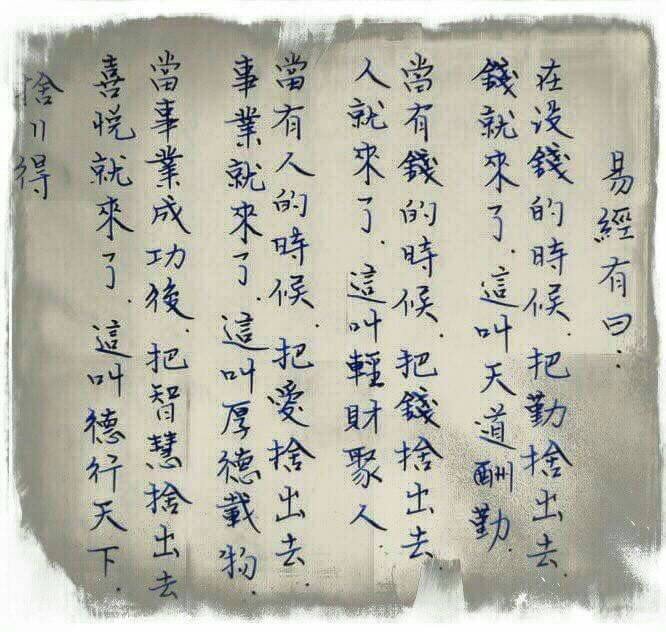 易經有曰：
在没錢的時候．把勤捨出去．
錢就來了．這叫天道酬勤．
當有錢的時候．把錢捨出去．
人就來了．這叫輕財聚人．
當有人的時候．把愛捨出去．
事業就來了．這叫厚德載物．
當事業成功後．把智慧捨出去
喜悅就來了．這叫德行天下．
捨〃得